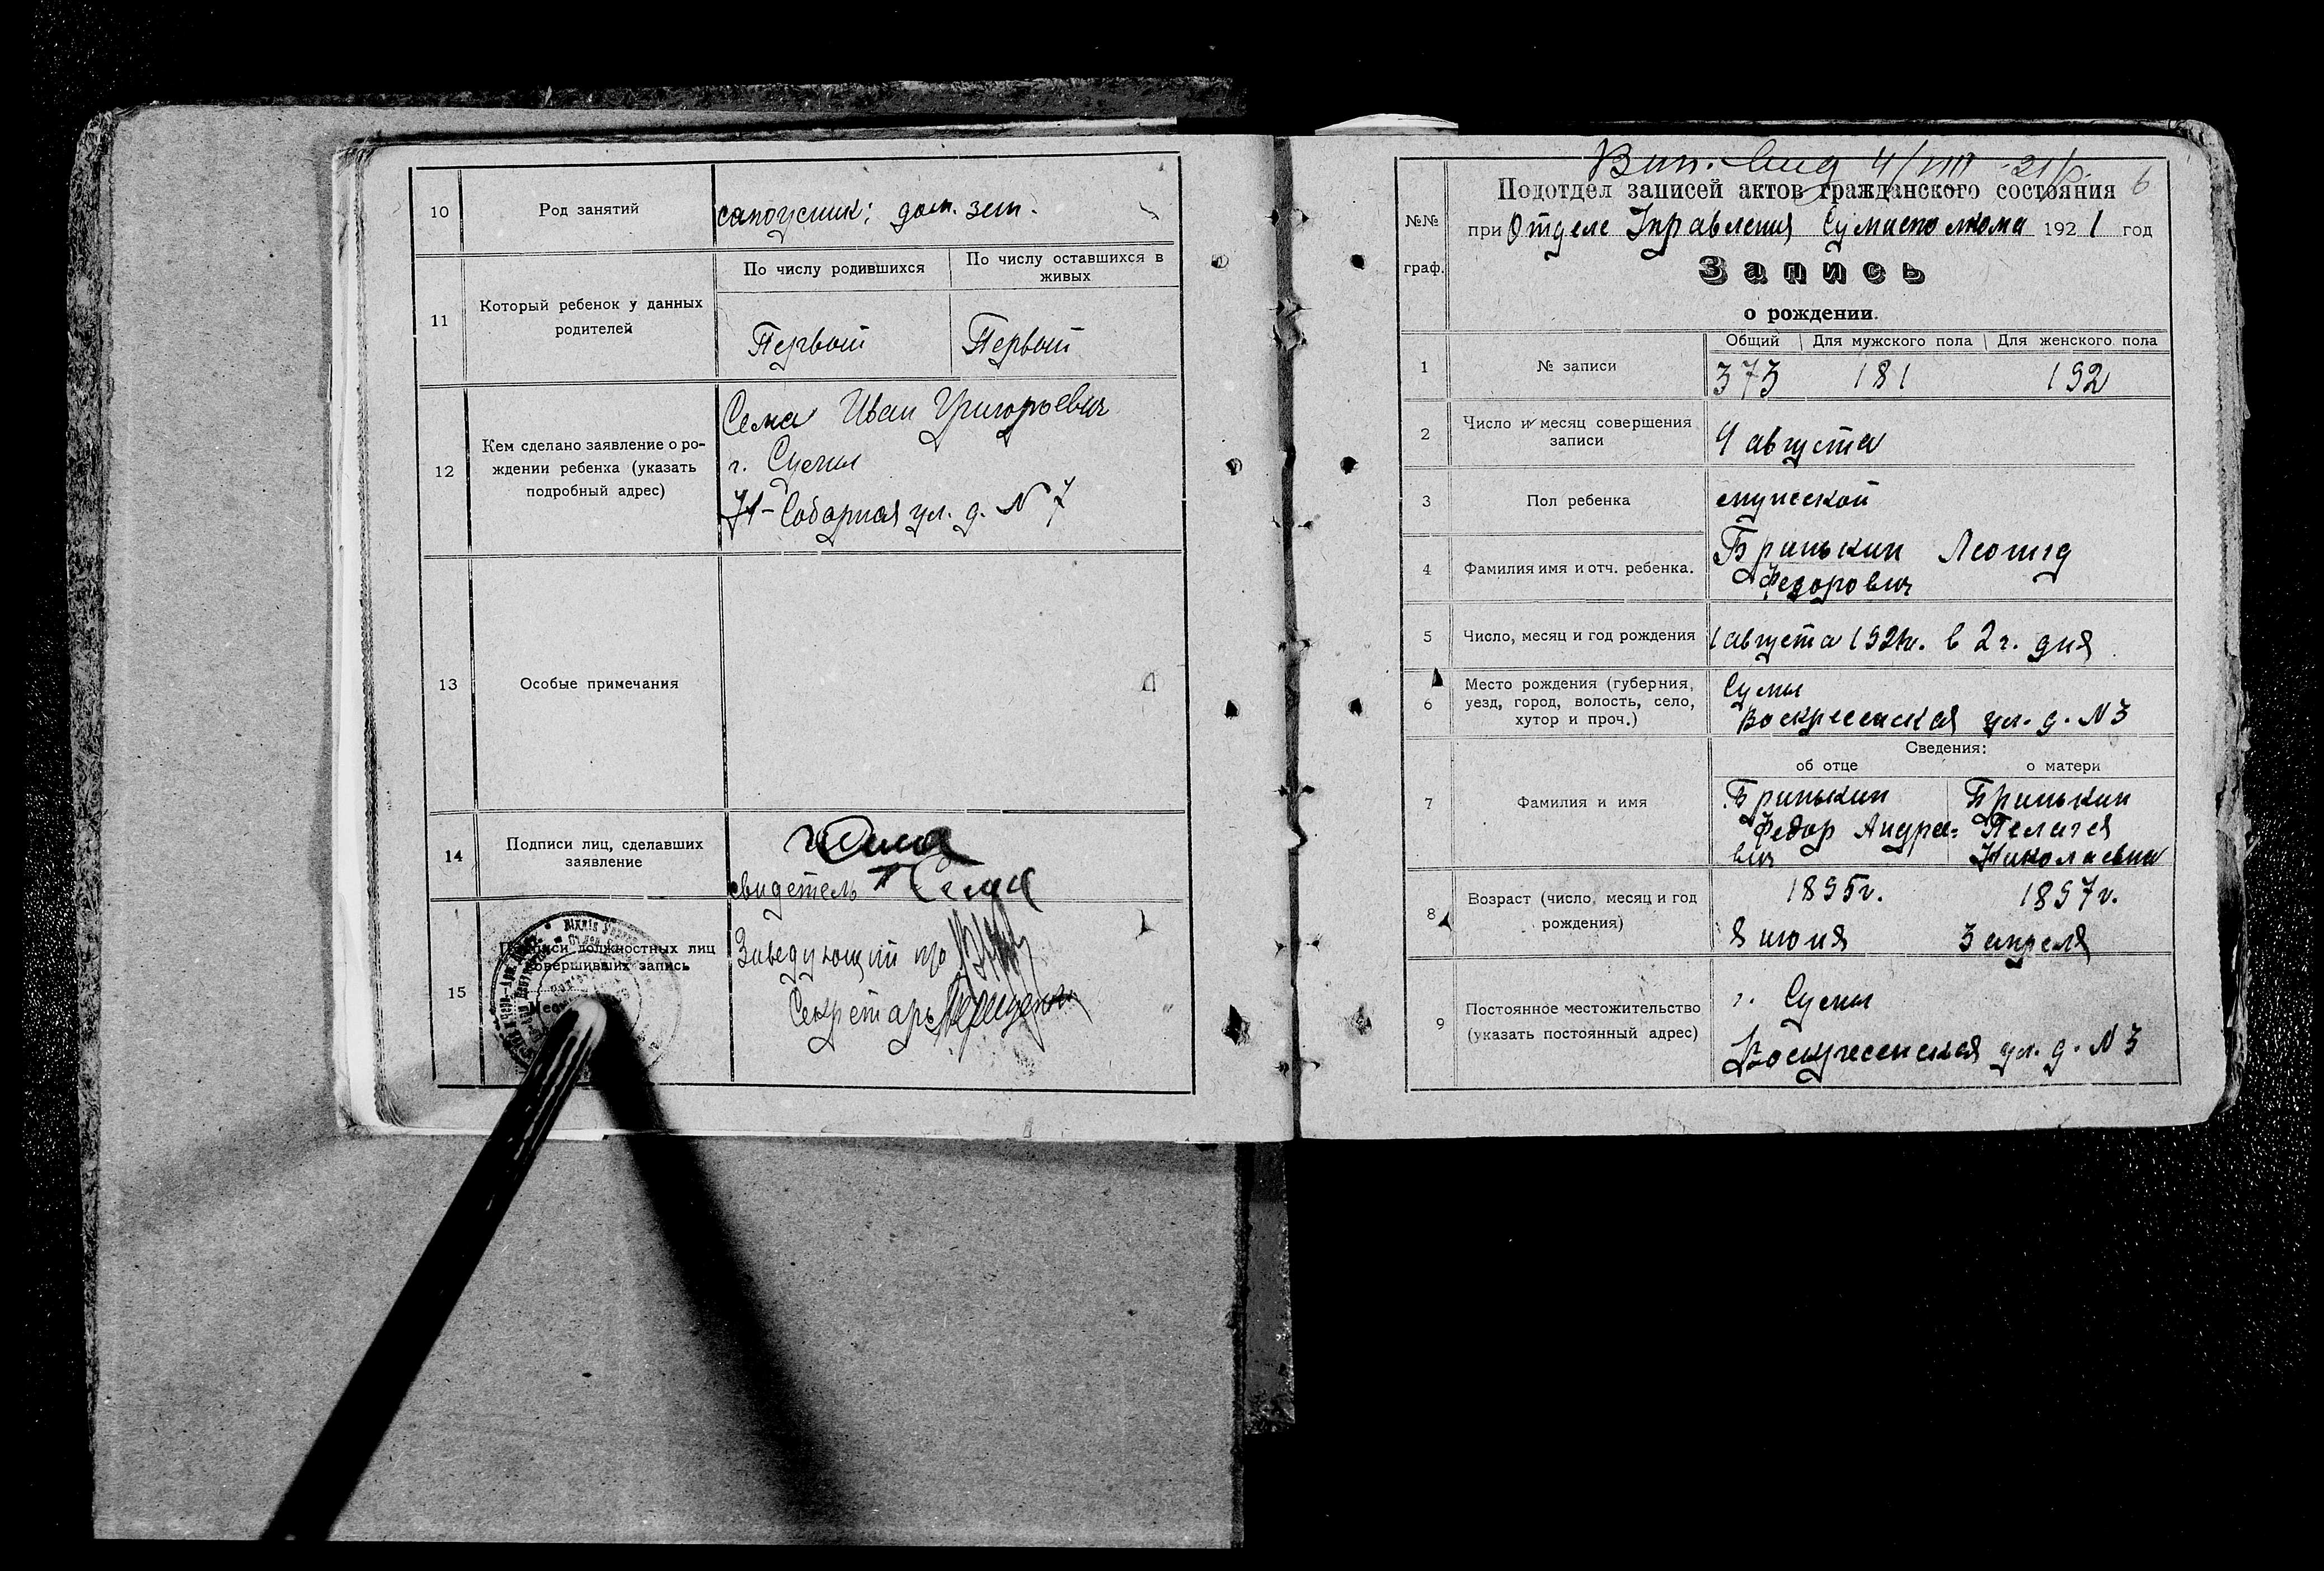 10
Род занятий
сапожник; дом. зан.
11
Который ребенок у данных
родителей
По числу родившихся
По числу оставшихся в
живых
Первый
Первый
12
Кем сделано заявление о ро-
ждении ребенка (указать
подробный адрес)
Сема Иван Григорьевич
г. Сумы
Н-Соборная ул. д. N 7
13
Особые примечания
14
Подписи лиц, сделавших
заявление
Сема
свидетель Сема
15
Подписи должностных лиц
совершивших запись
Заведующий
Секретарь
6
Подотдел записей актов гражданского состояния
№№
граф.
при Отделе Управления Сумисполкома 1921 год
Запись
о рождении.
1
№ записи
Общий
Для мужского пола
Для женского пола
373
181
192
2
Число и месяц совершения
записи
4 августа
3
Пол ребенка
мужской
4
Фамилия имя и отч. ребенка.
Бринькин Леонид
Федорович
5
Число, месяц и год рождения
1 августа 1921г. в 2 ч. дня
6
Место рождения (губерния,
уезд, город, волость, село,
хутор и проч.)
Сумы
Воскресенская ул. д. N 3
Сведения:
об отце
о матери
7
Фамилия и имя
Бринькин
Федор Андрее-
вич
Бринькин
Пелагея
Николаевна
8
Возраст (число, месяц и год
рождения)
1895г.
8 июня
1897г.
3 апреля
9
Постоянное местожительство
(указать постоянный адрес)
г. Сумы
Воскресенская ул. д. N 3